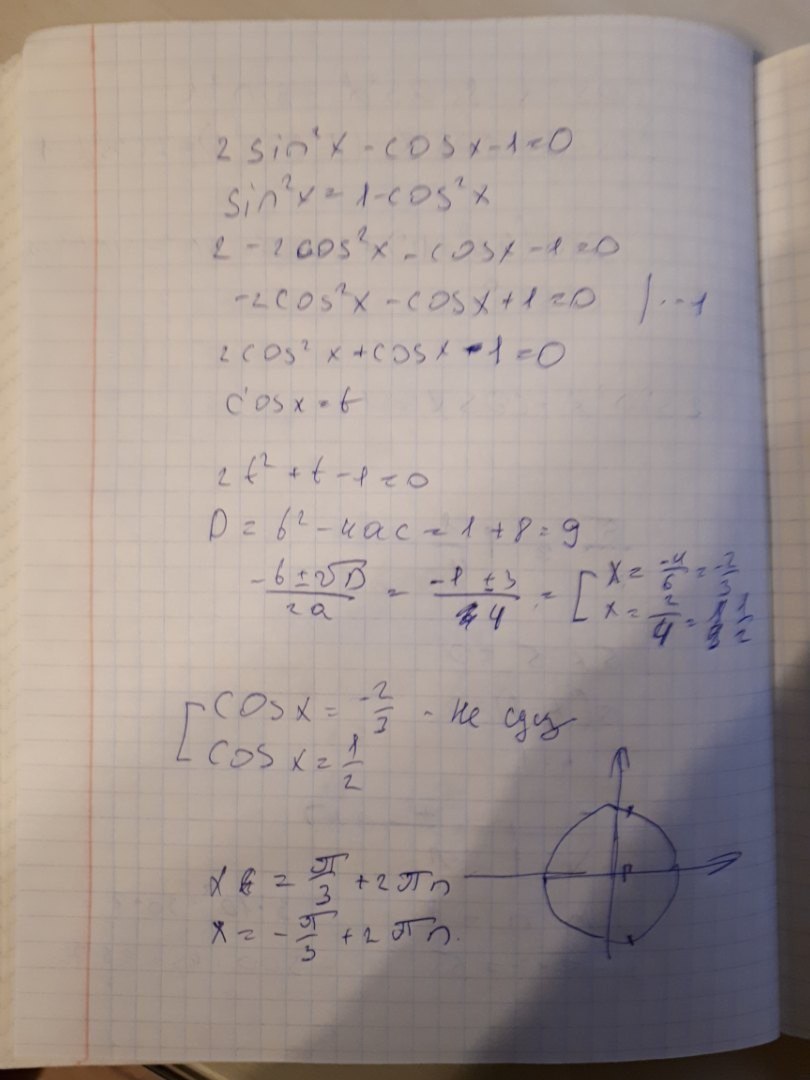 2 sin²x - cosx - 1 = 0
sin²x = 1 - cos²x
2 - 2cos²x - cosx - 1 = 0
-2cos²x - cosx + 1 = 0 | · -1
2cos²x + cosx - 1 = 0
cosx = t
2t² + t - 1 = 0
D = b² - 4ac = 1 + 8 = 9
(-b ± √D)/2a = (-1 ± 3)/4 = [ x = -4/6 = -2/3
x = 2/4 = 1/2
[ cosx = -2/3 - не сущ
cosx = 1/2
x = π/3 + 2πn
x = -π/3 + 2πn.